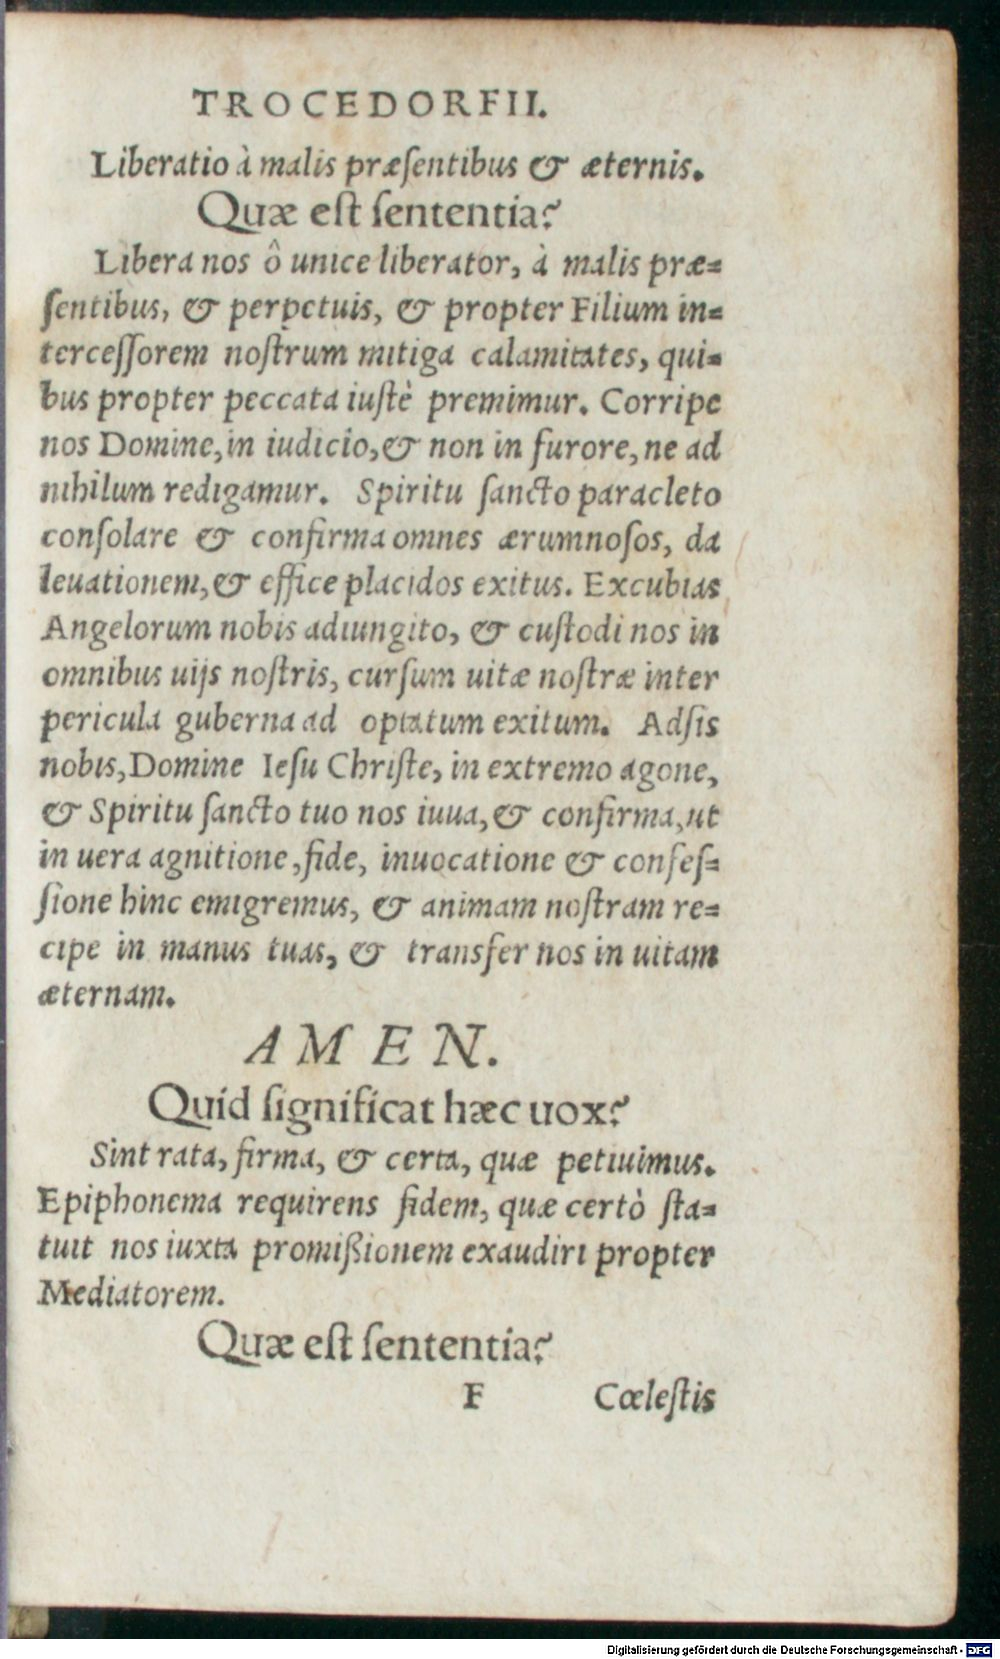 TROCEDORFII.
Liberatio à malis præſentibus & æternis.
Quæ eſt ſententia?
Libera nos ô unice liberator, à malis præ=
ſentibus, & perpetuis, & propter Filium in=
terceſſorem noſtrum mitiga calamitates, qui=
bus propter peccata iuſtè premimur. Corripe
nos Domine, in iudicio, & non in furore, ne ad
nihilum redigamur. Spiritu ſancto paracleto
conſolare & confirma omnes ærumnoſos, da
leuationem, & effice placidos exitus. Excubias
Angelorum nobis adiungito, & cuſtodi nos in
omnibus uijs noſtris, curſum uitæ noſtræ inter
pericula guberna ad optatum exitum. Adſis
nobis, Domine Ieſu Chriſte, in extremo agone,
& Spiritu ſancto tuo nos iuua, & confirma, ut
in uera agnitione, fide, inuocatione & confeſ=
ſione hinc emigremus, & animam noſtram re=
cipe in manus tuas, & transfer nos in uitam
æternam.
AMEN.
Quid ſignificat hæc uox?
Sint rata, firma, & certa, quæ petiuimus.
Epiphonema requirens fidem, quæ certò ſta=
tuit nos iuxta promißionem exaudiri propter
Mediatorem.
Quæ eſt ſententia?
F Cœleſtis
Digitalisierung gefördert durch die Deutsche Forschungsgemeinschaft - DFG